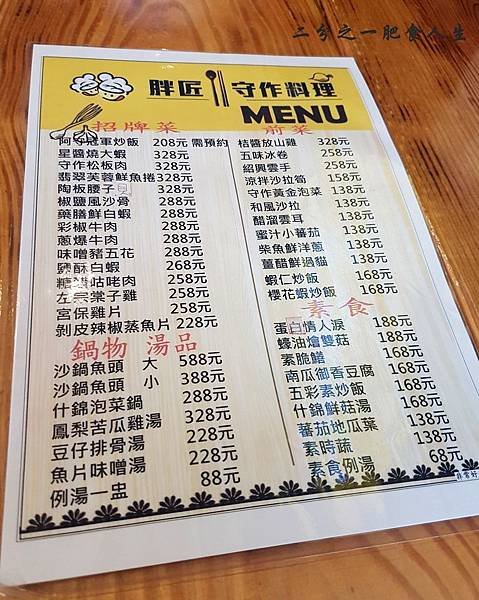 二兮之一肥食人生
胖匠 守作料理
MENU
招牌菜
阿守冠軍炒飯 208元 需預約
星醬燒大蝦 328元
守作松板肉 328元
翡翠芙蓉鮮魚捲 328元
陶板腰子 328元
椒鹽風沙骨 288元
藥膳鮮白蝦 288元
彩椒牛肉 288元
蔥爆牛肉 288元
味噌豬五花 288元
酥白蝦 268元
糖醋咕咾肉 258元
左宗棠子雞 258元
宮保雞片 258元
剝皮辣椒蒸魚片 228元
鍋物 湯品
沙鍋魚頭 大 588元
沙鍋魚頭 小 388元
什錦泡菜鍋 288元
鳳梨苦瓜雞湯 328元
豆仔排骨湯 228元
魚片味噌湯 228元
例湯一盅 88元
前菜
桔醬放山雞 328元
五味冰卷 258元
紹興雲手 258元
涼拌沙拉筍 158元
守作黃金泡菜 138元
和風沙拉 138元
醋溜雲耳 138元
蜜汁小蕃茄 138元
柴魚鮮洋蔥 138元
薑醋鮮過貓 138元
蝦仁炒飯 168元
櫻花蝦炒飯 168元
素食
蛋白情人淚 188元
蠔油燴雙菇 188元
素脆鱔 168元
南瓜御香豆腐 168元
五彩素炒飯 168元
什錦鮮菇湯 168元
蕃茄地瓜葉 138元
素時蔬 138元
素食例湯 68元